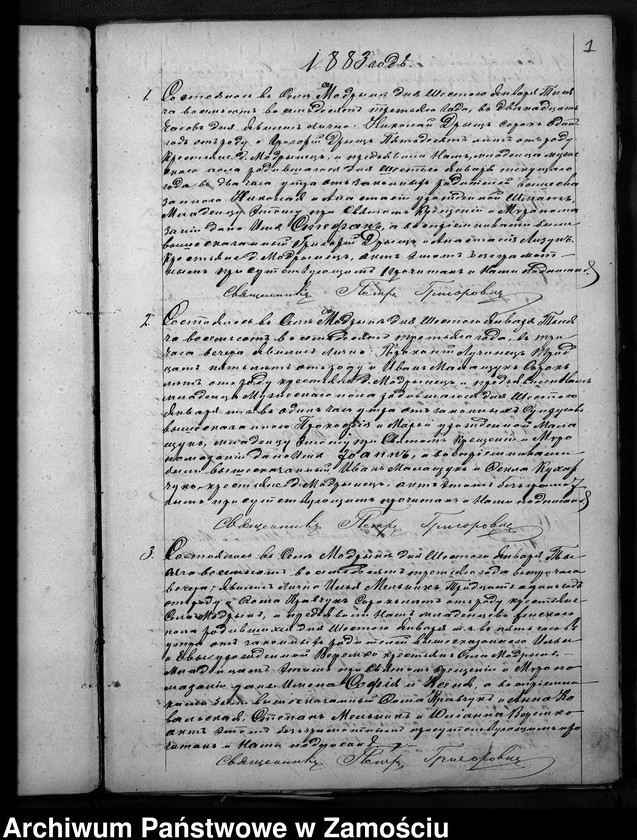 1
1883 годъ.
1. Состоялось въ Селѣ Модрыни дня Шестого Января Тыся
ча восемьсотъ восемьдесятъ третьяго года, въ двѣнадцать
часовъ дня. явились лично: Николай Дрыщъ сорокъ
лѣтъ отъ роду и Григорій Дрыщъ Пятьдесятъ лѣтъ отъ роду
крестьяне д. Модрынецъ, и предъявили Намъ, младенца мужес
кого пола родившагося дня шестого Января текущаго
года въ два часа утра отъ законныхъ родителей вышеска
заннаго Николая и Анастасіи урожденной
Младенцу этому при Святомъ Крещеніи и Муропома
заніи дано Имя Стефанъ, а воспріемниками были
вышесказанный Григорій Дрыщъ и Анастасія
Крестьяне д. Модрынецъ, актъ этотъ безграмот
нымъ присутствующимъ прочитанъ и Нами подписанъ.
Священникъ Петръ Григоровичъ
2. Состоялось въ Селѣ Модрыни дня Шестого Января Тыся
ча восемьсотъ восемьдесятъ третьяго года, въ три
часа вечера явились лично: Прокопій Лучинецъ Трид
цать пять лѣтъ отъ роду и Иванъ Малащукъ Сорокъ
лѣтъ отъ роду крестьяне д. Модрынецъ, и предъявили Намъ
младенца Мужескаго пола родившагося дня Шестого
Января т. г. въ одинъ часъ утра отъ законныхъ Супруговъ
вышесказаннаго Прокофія и Маріи урожденной Мала
щукъ, младенцу этому при Святомъ Крещеніи и Муро
помазаніи дано Имя Іоаннъ, а воспріемниками
были вышесказанный Иванъ Малащукъ и Фекла Кухар
чукъ крестьяне д. Модрынецъ, актъ этотъ безграмот
нымъ присутствующимъ прочитанъ и Нами подписанъ
Священникъ Петръ Григоровичъ
3. Состоялось въ Селѣ Модрыни дня Шестого Января Ты
сяча восемьсотъ восемьдесятъ третьяго года въ три часа
вечера; явились лично Илья Мельникъ Тридцать одинъ годъ
отъ роду и Фома Кравчукъ Сорокъ лѣтъ отъ роду крестьяне
Села Модрыня, и предъявили Намъ младенцевъ женского
пола родившихся дня Шестого Января т. г. въ пять часовъ
утра отъ законныхъ родителей вышесказаннаго Ильи
и Евы урожденной Веремко крестьянъ Села Модрыня.
Младенцамъ этимъ при Святомъ Крещеніи и Муропо
мазаніи даны Имена Софія и Ксенія, а воспріемни
ками были вышесказанный Фома Кравчукъ и Анна Ко
вальская, Степанъ Мельникъ и Юліанна Веремко
актъ этотъ безграмотнымъ присутствующимъ про
читанъ и Нами подписанъ
Священникъ Петръ Григоровичъ
Archiwum Państwowe w Zamościu